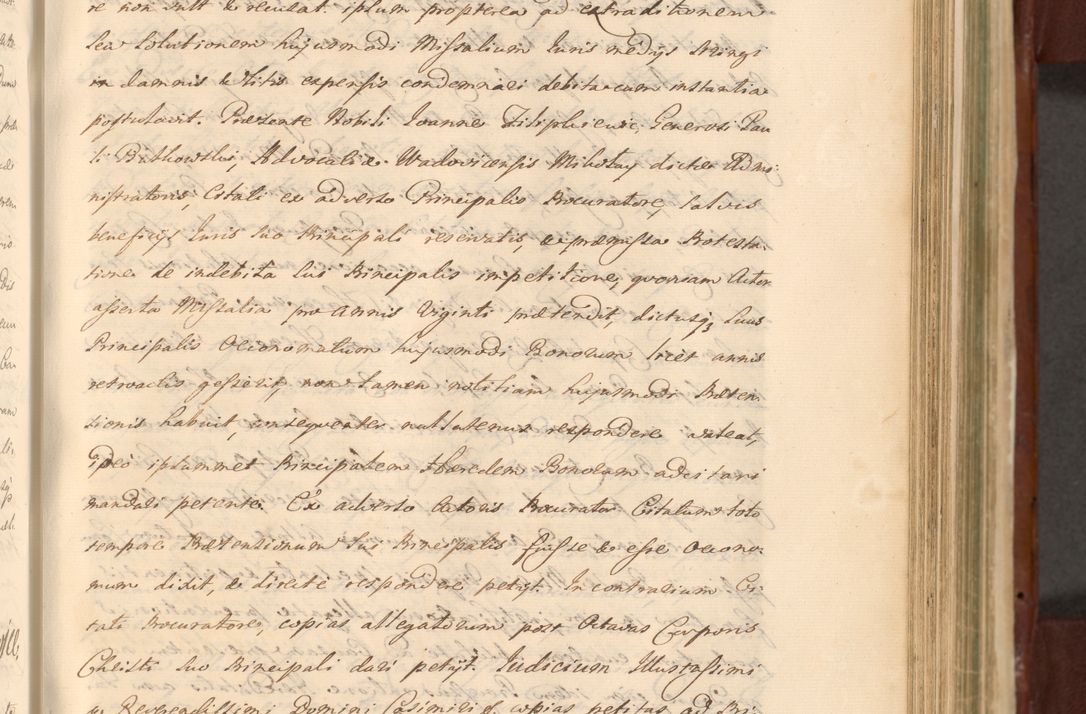 re non vult & recusat. ipsum propterea ad extraditionem
seu solutionem hujusmodi Missalium Juris medijs stringi
in damnis & litis expensis condemnari debitarum instantia
postulavit. Præsente Nobili Joanne Filiphiewic, Generosi Pau
li Butkowski, Advocaliæ Wadovicensis Mikołay dictæ Admi-
nistratoris, Citati ex adverso Principalis Procuratore, salvis
beneficijs Juris suo Principali reservatis, & præmissa Protesta-
tione de indebita sui Principalis impetitione, quoniam Actor
asserta Missalia pro annis Viginti prætendit, dictusq3 suus
Principalis Oeconomatum hujusmodi Bonorum licet annis
retroactis gesserit, non tamen notitiam hujusmodi Præten-
sionis habuit, consequenter nullatenus respondere valeat,
ideo ipsummet Principalem Hæredem Bonorum adcitari
mandari petente. Ex adverso Actoris Procurator Citatum toto
tempore Prætensionum sui Principalis fuisse & esse Oecono-
mum dixit, & directe respondere petijt. In contrarium Ci-
tati Procuratore, copias allegatorum post Octavas Corporis
Christi suo Principali dari petijt. Judicium Illustrissimi
& Reverendissimi Domini Casimiri copias petitas ad Pri-